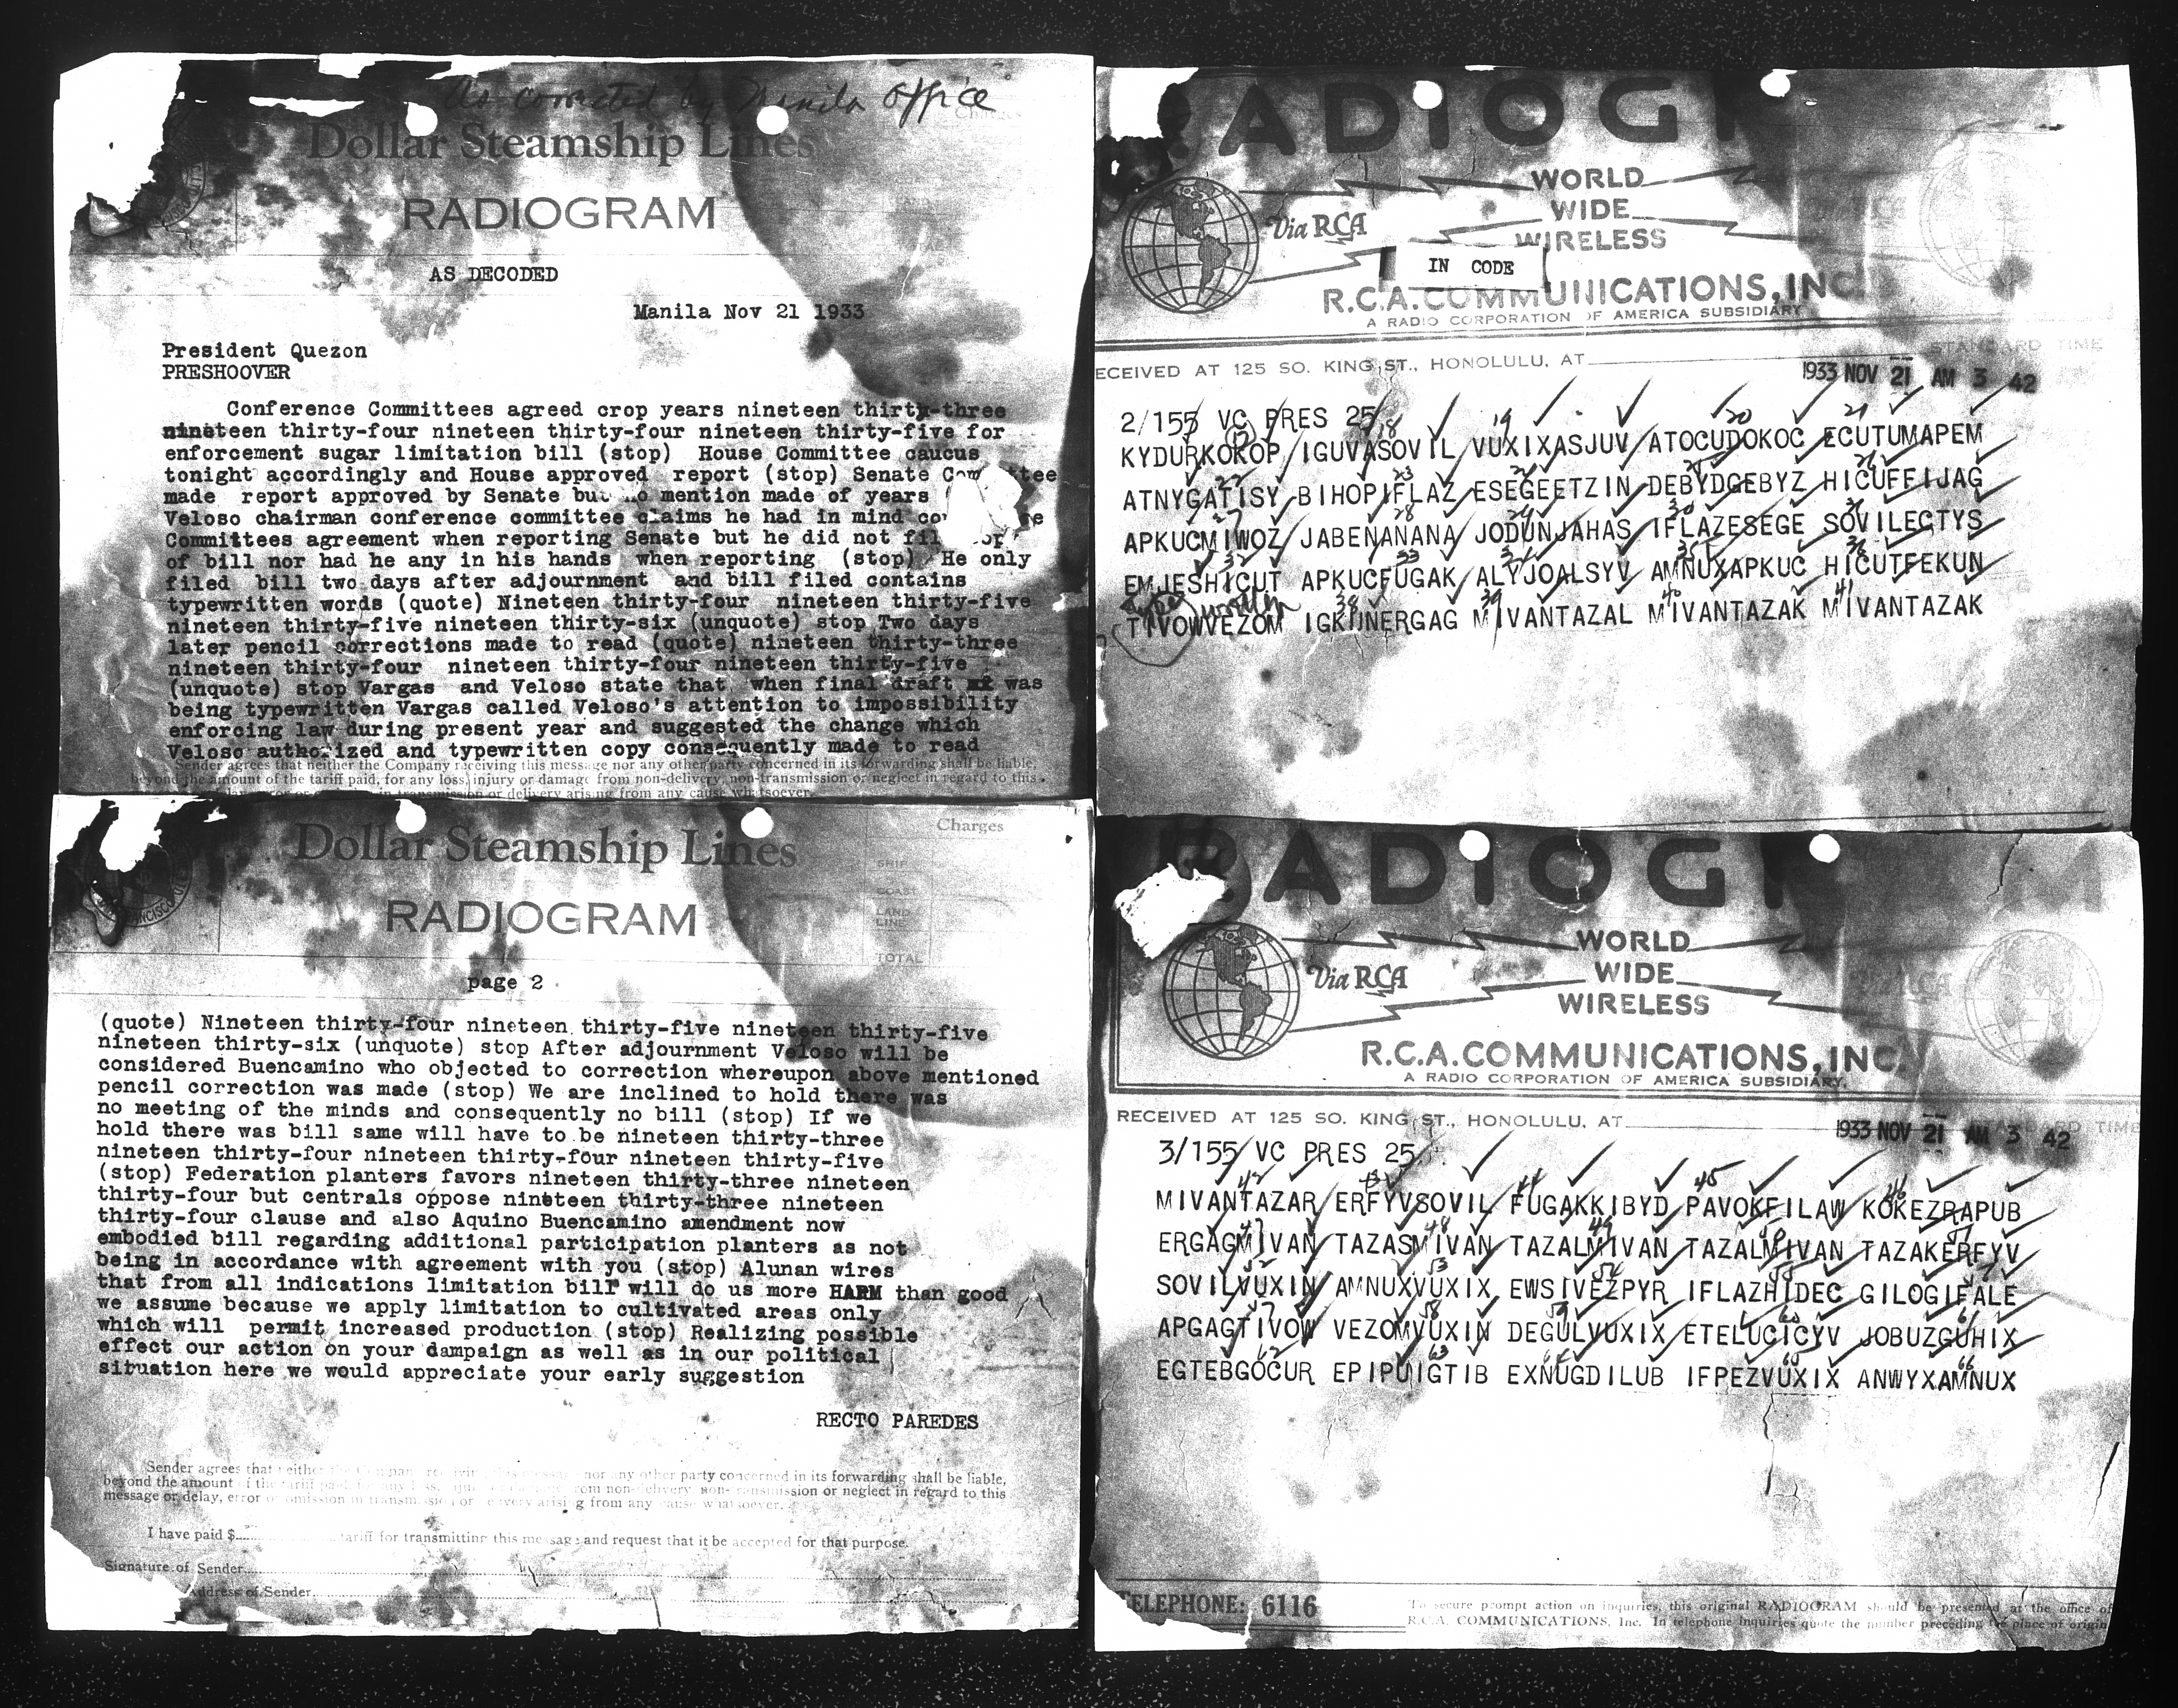 As corrected by Manila Office
Charges
Dollar Steamship Lines
RADIOGRAM
AS DECODED
Manila Nov 21 1933
President Quezon
PRESHOOVER
Conference Committees agreed crop years nineteen thirty-three
nineteen thirty-four nineteen thirty-four nineteen thirty-five for
enforcement sugar limitation bill (stop) House Committee caucus
tonight accordingly and House approved report (stop) Senate Committee
made report approved by Senate but no mention made of years (
Veloso chairman conference committee claims he had in mind
Committees agreement when reporting Senate but he did not
of bill nor had he any in his hands when reporting (stop) He only
filed bill two days after adjournment and bill filed contains
typewritten words (quote) Nineteen thirty-four nineteen thirty-five
nineteen thirty-five nineteen thirty-six (unquote) stop Two days
later pencil corrections made to read (quote) nineteen thirty-three
nineteen thirty-four nineteen thirty-four nineteen thirty-five
(unquote) stop Vargas and Veloso state that when final draft was
being typewritten Vargas called Veloso's attention to impossibility
enforcing law during present year and suggested the change which
Veloso authorized and typewritten copy consequently made to read
Sender agrees that neither the Company receiving this message nor any other party concerned in its forwarding shall be liable,
beyond the amount of the tariff paid, for any loss, injury or damage from non-delivery, non-transmission or neglect in regard to this
in transmission or delivery arising from any cause whatsoever.
Charges
Dollar Steamship Lines
SHIP
COAST
RADIOGRAM
LAND LINE
TOTAL
page 2
(quote) Nineteen thirty-four nineteen thirty-five nineteen thirty-five
nineteen thirty-six (unquote) stop After adjournment Veloso will be
considered Buencamino who objected to correction whereupon above mentioned
pencil correction was made (stop) We are inclined to hold there was
no meeting of the minds and consequently no bill (stop) If we
hold there was bill same will have to be nineteen thirty-three
nineteen thirty-four nineteen thirty-four nineteen thirty-five
(stop) Federation planters favors nineteen thirty-three nineteen
thirty-four but centrals oppose nineteen thirty-three nineteen
thirty-four clause and also Aquino Buencamino amendment now
embodied bill regarding additional participation planters as not
being in accordance with agreement with you (stop) Alunan wires
that from all indications limitation bill will do us more HARM than good
we assume because we apply limitation to cultivated areas only
which will permit increased production (stop) Realizing possible
effect our action on your dampaign as well as in our political
situation here we would appreciate your early suggestion
RECTO PAREDES
Sender agrees that neither the Company receiving this message nor any other party concerned in its forwarding shall be liable,
beyond the amount of the tariff paid for any loss, from non-delivery non-transmission or neglect in regard to this
message or delay, error or omission in transmission or delivery arising from any cause whatsoever.
I have paid $ tariff for transmitting this message and request that it be accepted for that purpose.
Signature of Sender
Address of Sender
RADIOG
WORLD
WIDE
WIRELESS
Via RCA
IN CODE
R.C.A. COMMUNICATIONS, INC.
A RADIO CORPORATION OF AMERICA SUBSIDIARY
STANDARD TIME
RECEIVED AT 125 SO. KING ST., HONOLULU, AT 1933 NOV 21 AM 3 42
2/155 VC PRES 25
KYDURKOKOP IGUVASOVIL VUXIXASJUV ATOCUDOKOC ECUTUMAPEM
ATNYGATISY BIHOPIFLAZ ESEGEETZIN DEBYDGEBYZ HICUFFIJAG
APKUCMIWOZ JABENANANA JODUNJAHAS IFLAZESEGE SOVILECTYS
EMJESHICUT APKUCFUGAK ALYJOALSYV AMNUXAPKUC HICUTFEKUN
TIVOWVEZOM IGKIJNERGAG MIVANTAZAL MIVANTAZAK MIVANTAZAK
RADIOG
WORLD
WIDE
WIRELESS
Via RCA
R.C.A. COMMUNICATIONS, INC.
A RADIO CORPORATION OF AMERICA SUBSIDIARY
RECEIVED AT 125 SO. KING ST., HONOLULU, AT 1933 NOV 21 AM 3 42 STANDARD TIME
3/155 VC PRES 25
MIVANTAZAR ERFYVSOVIL FUGAKKIBYD PAVOKFILAW KOKEZRAPUB
ERGAGMIVAN TAZASMIVAN TAZALMIVAN TAZALMIVAN TAZAKERFYV
SOVILVUXIN AMNUXVUXIX EWSIVEZPYR IFLAZHIDEC GILOGIFALE
APGAGTIVOW VEZOMVUXIN DEGULVUXIX ETELUCICYV JOBUZGUHIX
EGTEBGOCUR EPIPUIGTIB EXNUGDILUB IFPEZVUXIX ANWYXAMNUX
TELEPHONE: 6116
To secure prompt action on inquiries, this original RADIOGRAM should be presented at the office of
R.C.A. COMMUNICATIONS, Inc. In telephone inquiries quote the number preceding the place of origin